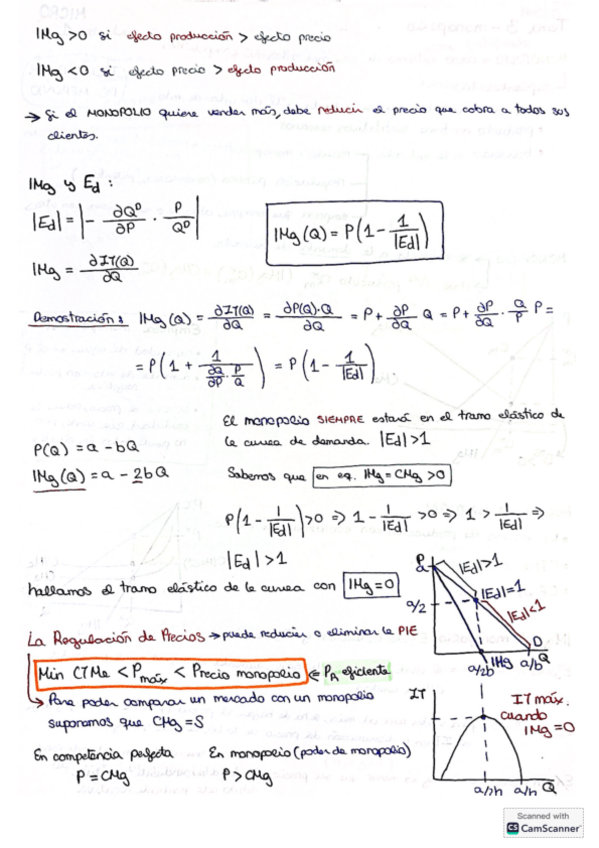 IMg >0 si efecto producción > efecto precio
IMg <0 si efecto precio > efecto producción
→ Si el MONOPOLIO quiere vender más, debe reducir el precio que cobra a todos sus
clientes.
IMg y Ed :
|Ed| = |- ∂Q^D/∂P · P/Q^D|
IMg (Q) = P(1 - 1/|Ed|)
IMg = ∂IT(Q)/∂Q
Demostración : IMg (Q) = ∂IT(Q)/∂Q = ∂P(Q)·Q/∂Q = P + ∂P/∂Q Q = P + ∂P/∂Q · Q/P P =
= P(1 + 1/(∂Q/∂P · P/Q)) = P(1 - 1/|Ed|)
El monopolio SIEMPRE estará en el tramo elástico de
la curva de demanda. |Ed| >1
P(Q) = a - bQ
IMg (Q) = a - 2bQ
Sabemos que en eq. IMg = CMg >0
P(1 - 1/|Ed|) >0 ⇒ 1 - 1/|Ed| >0 ⇒ 1 > 1/|Ed| ⇒
|Ed| >1
hallamos el tramo elástico de la curva con IMg = 0
P
a
|Ed|>1
|Ed|=1
a/2
|Ed|<1
D
a/2b IMg a/b Q
La Regulación de Precios → puede reducir o eliminar la PIE
Min CTMe < Pmáx < Precio monopolio ⇐ PR eficiente
→ Para poder comparar un mercado con un monopolio
suponemos que CMg = S
IT
IT máx.
cuando
IMg = 0
En competencia perfecta En monopolio (poder de monopolio)
P = CMg P > CMg
Q
Scanned with
CS CamScanner